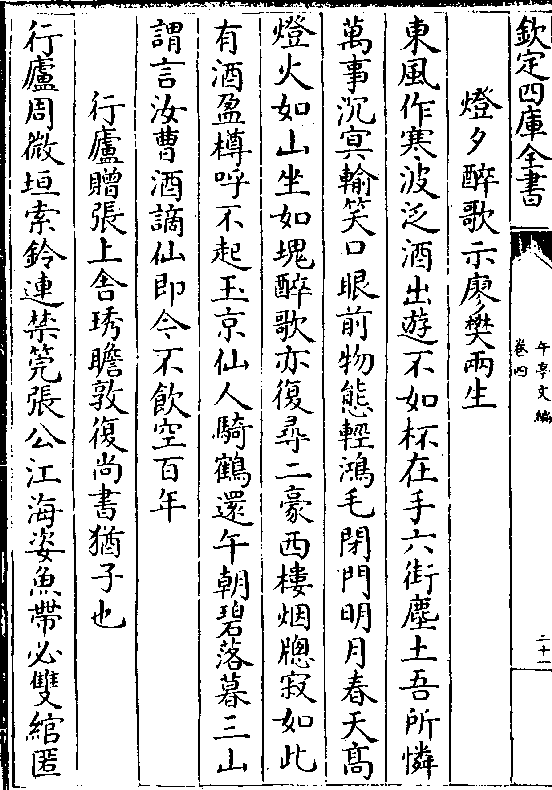 欽定四庫全書
午亭文編
卷四
二十一
燈夕醉歌示廖樊兩生
東風作寒波泛酒出遊不如杯在手六街塵土吾所憐
萬事沉冥輸笑口眼前物態輕鴻毛閉門明月春天高
燈火如山坐如塊醉歌亦復尋二豪西樓烟牎寂如此
有酒盈樽呼不起玉京仙人騎鶴還午朝碧落暮三山
謂言汝曹酒謫仙即今不飲空百年
行廬贈張上舍琇瞻敦復尚書猶子也
行廬周微垣索鈴連禁箢張公江海姿魚帶必雙綰匿